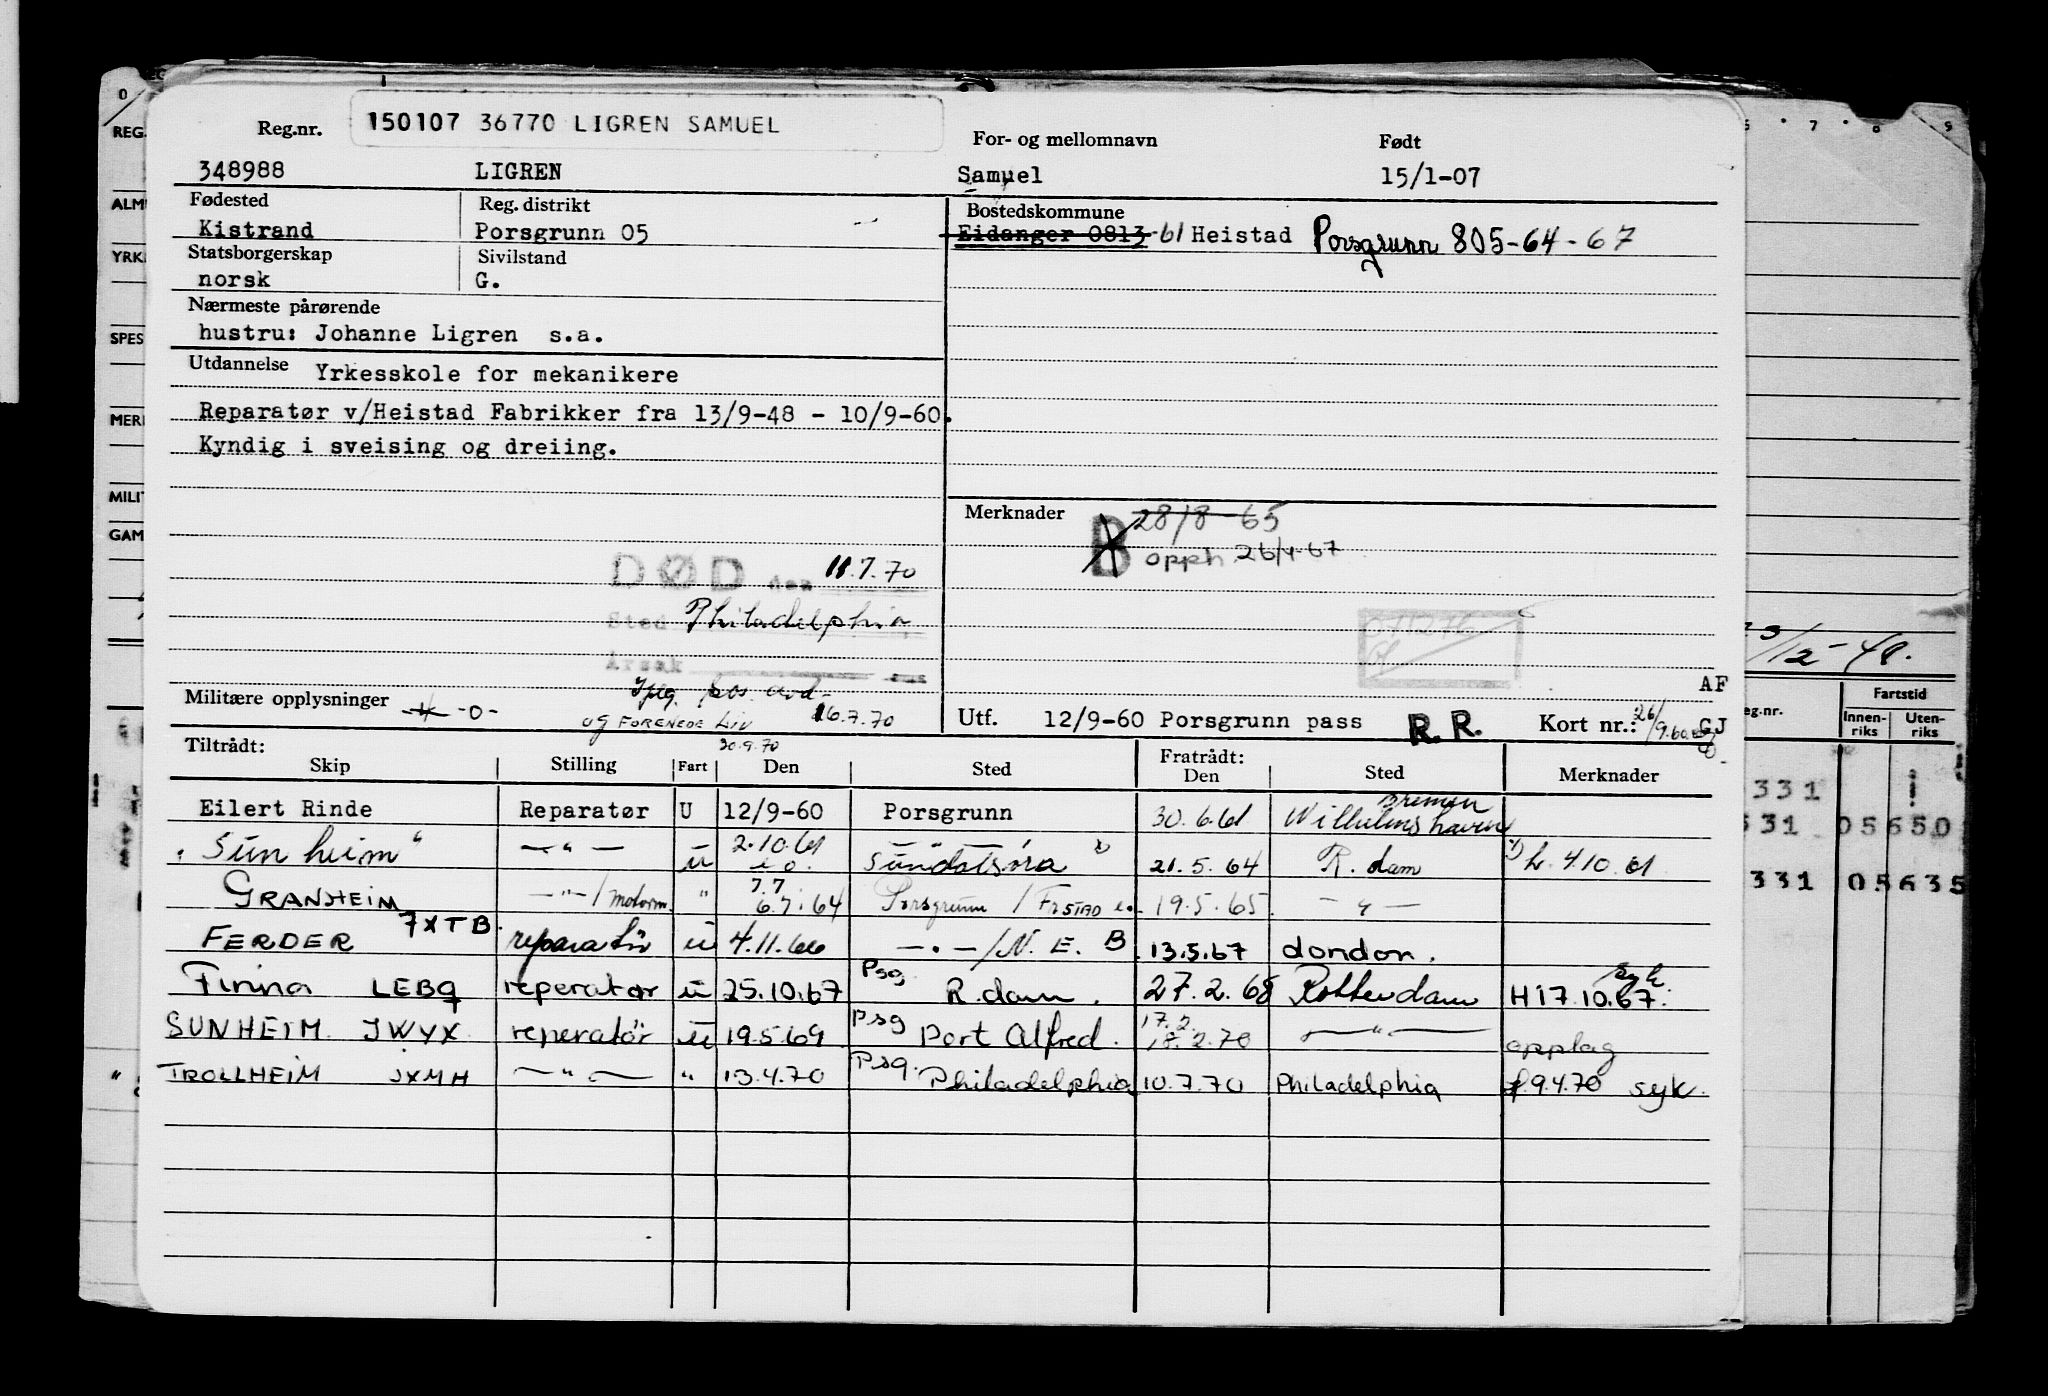 150107 36770 LIGREN SAMUEL
Reg.nr. For- og mellomnavn Født
348988 LIGREN Samuel 15/1-07
Fødested Reg. distrikt Bostedskommune
Kistrand Porsgrunn 05 Eidanger 0813 -61 Heistad Porsgrunn 805-64-67
Statsborgerskap Sivilstand
norsk G.
Nærmeste pårørende
hustru: Johanne Ligren s.a.
Utdannelse Yrkesskole for mekanikere
Reparatør v/Heistad Fabrikker fra 13/9-48 - 10/9-60.
Kyndig i sveising og dreiing.
Merknader B 28/8-65
opph. 26/4-67
DØD den 11.7.70
Sted Philadelphia
Årsak
071276
AF
Militære opplysninger -0-
og FORENEDE LIV 16.7.70
20.9.70
Utf. 12/9-60 Porsgrunn pass R.R. Kort nr.: 26/9.60 GJ
Tiltrådt: Fratrådt:
Skip Stilling Fart Den Sted Den Sted Merknader
Eilert Rinde Reparatør U 12/9-60 Porsgrunn 30.6.61 Bremen Wilhelmshaven
"Sunheim" — " — u 2.10.61 Sundalsöra 1) 21.5.64 R.dam 1) L. 4.10.61
GRANHEIM — " — / motorm. " 7.7 6.7.64 Porsgrunn / 19.5.65 — " —
FERDER JXTB reparatör u 4.11.66 — " — / N.E.B. 13.5.67 London.
Finna LEBQ reperatør u 25.10.67 Psg. R.dam. 27.2.68 Rotterdam H 17.10.67. syk
SUNHEIM JWYX reperatör u 19.5.69 Psg Port Alfred. 17.2. 18.2.70 — " — opplag
TROLLHEIM JXMH — " — " 13.4.70 Psg. Philadelphia 10.7.70 Philadelphia f.9.4.70 syk.
REG.
ALM
YRK
SPES
MERK
MILIT
GAM
6 7 8 9
/12-48.
Fartstid
eg.nr. Innen-riks Uten-riks
331
331 05650
331 05635